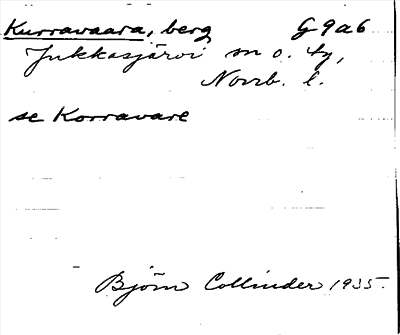 Kurravaara, berg G 9 a 6
Jukkasjärvi sn o. tg,
Norrb. l.
se Korravare
Björn Collinder 1935.